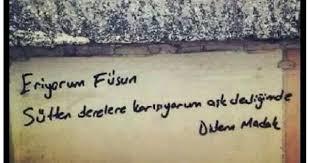 Eriyorum Füsun
Sütten derelere karışıyorum aşk dediğimde
Didem Madak